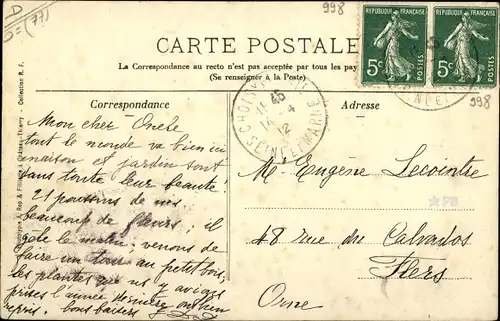 D
5=(77)
998
RÉPUBLIQUE FRANÇAISE
RÉPUBLIQUE FRANÇAISE
5c
5c
POSTES
CARTE POSTALE
La Correspondance au recto n'est pas acceptée par tous les pay
(Se renseigner à la Poste)
Correspondance
Adresse
CHOISY
45
14 - 4
12
SEINE ET MARNE
SEINE ET
Mon cher Oncle
tout le monde va bien ici
maison et jardin sont
dans toute leur beauté!
21 poussins de nés
beaucoup de fleurs; il
gèle le matin. venons de
faire un tour au petit bois,
les plantes que ns y avions
prises l'année dernière ont bien
repris. bons baisers
Mr Eugène Lecointre
48 rue du Calvados
Flers
Orne
998
Collection R. F.